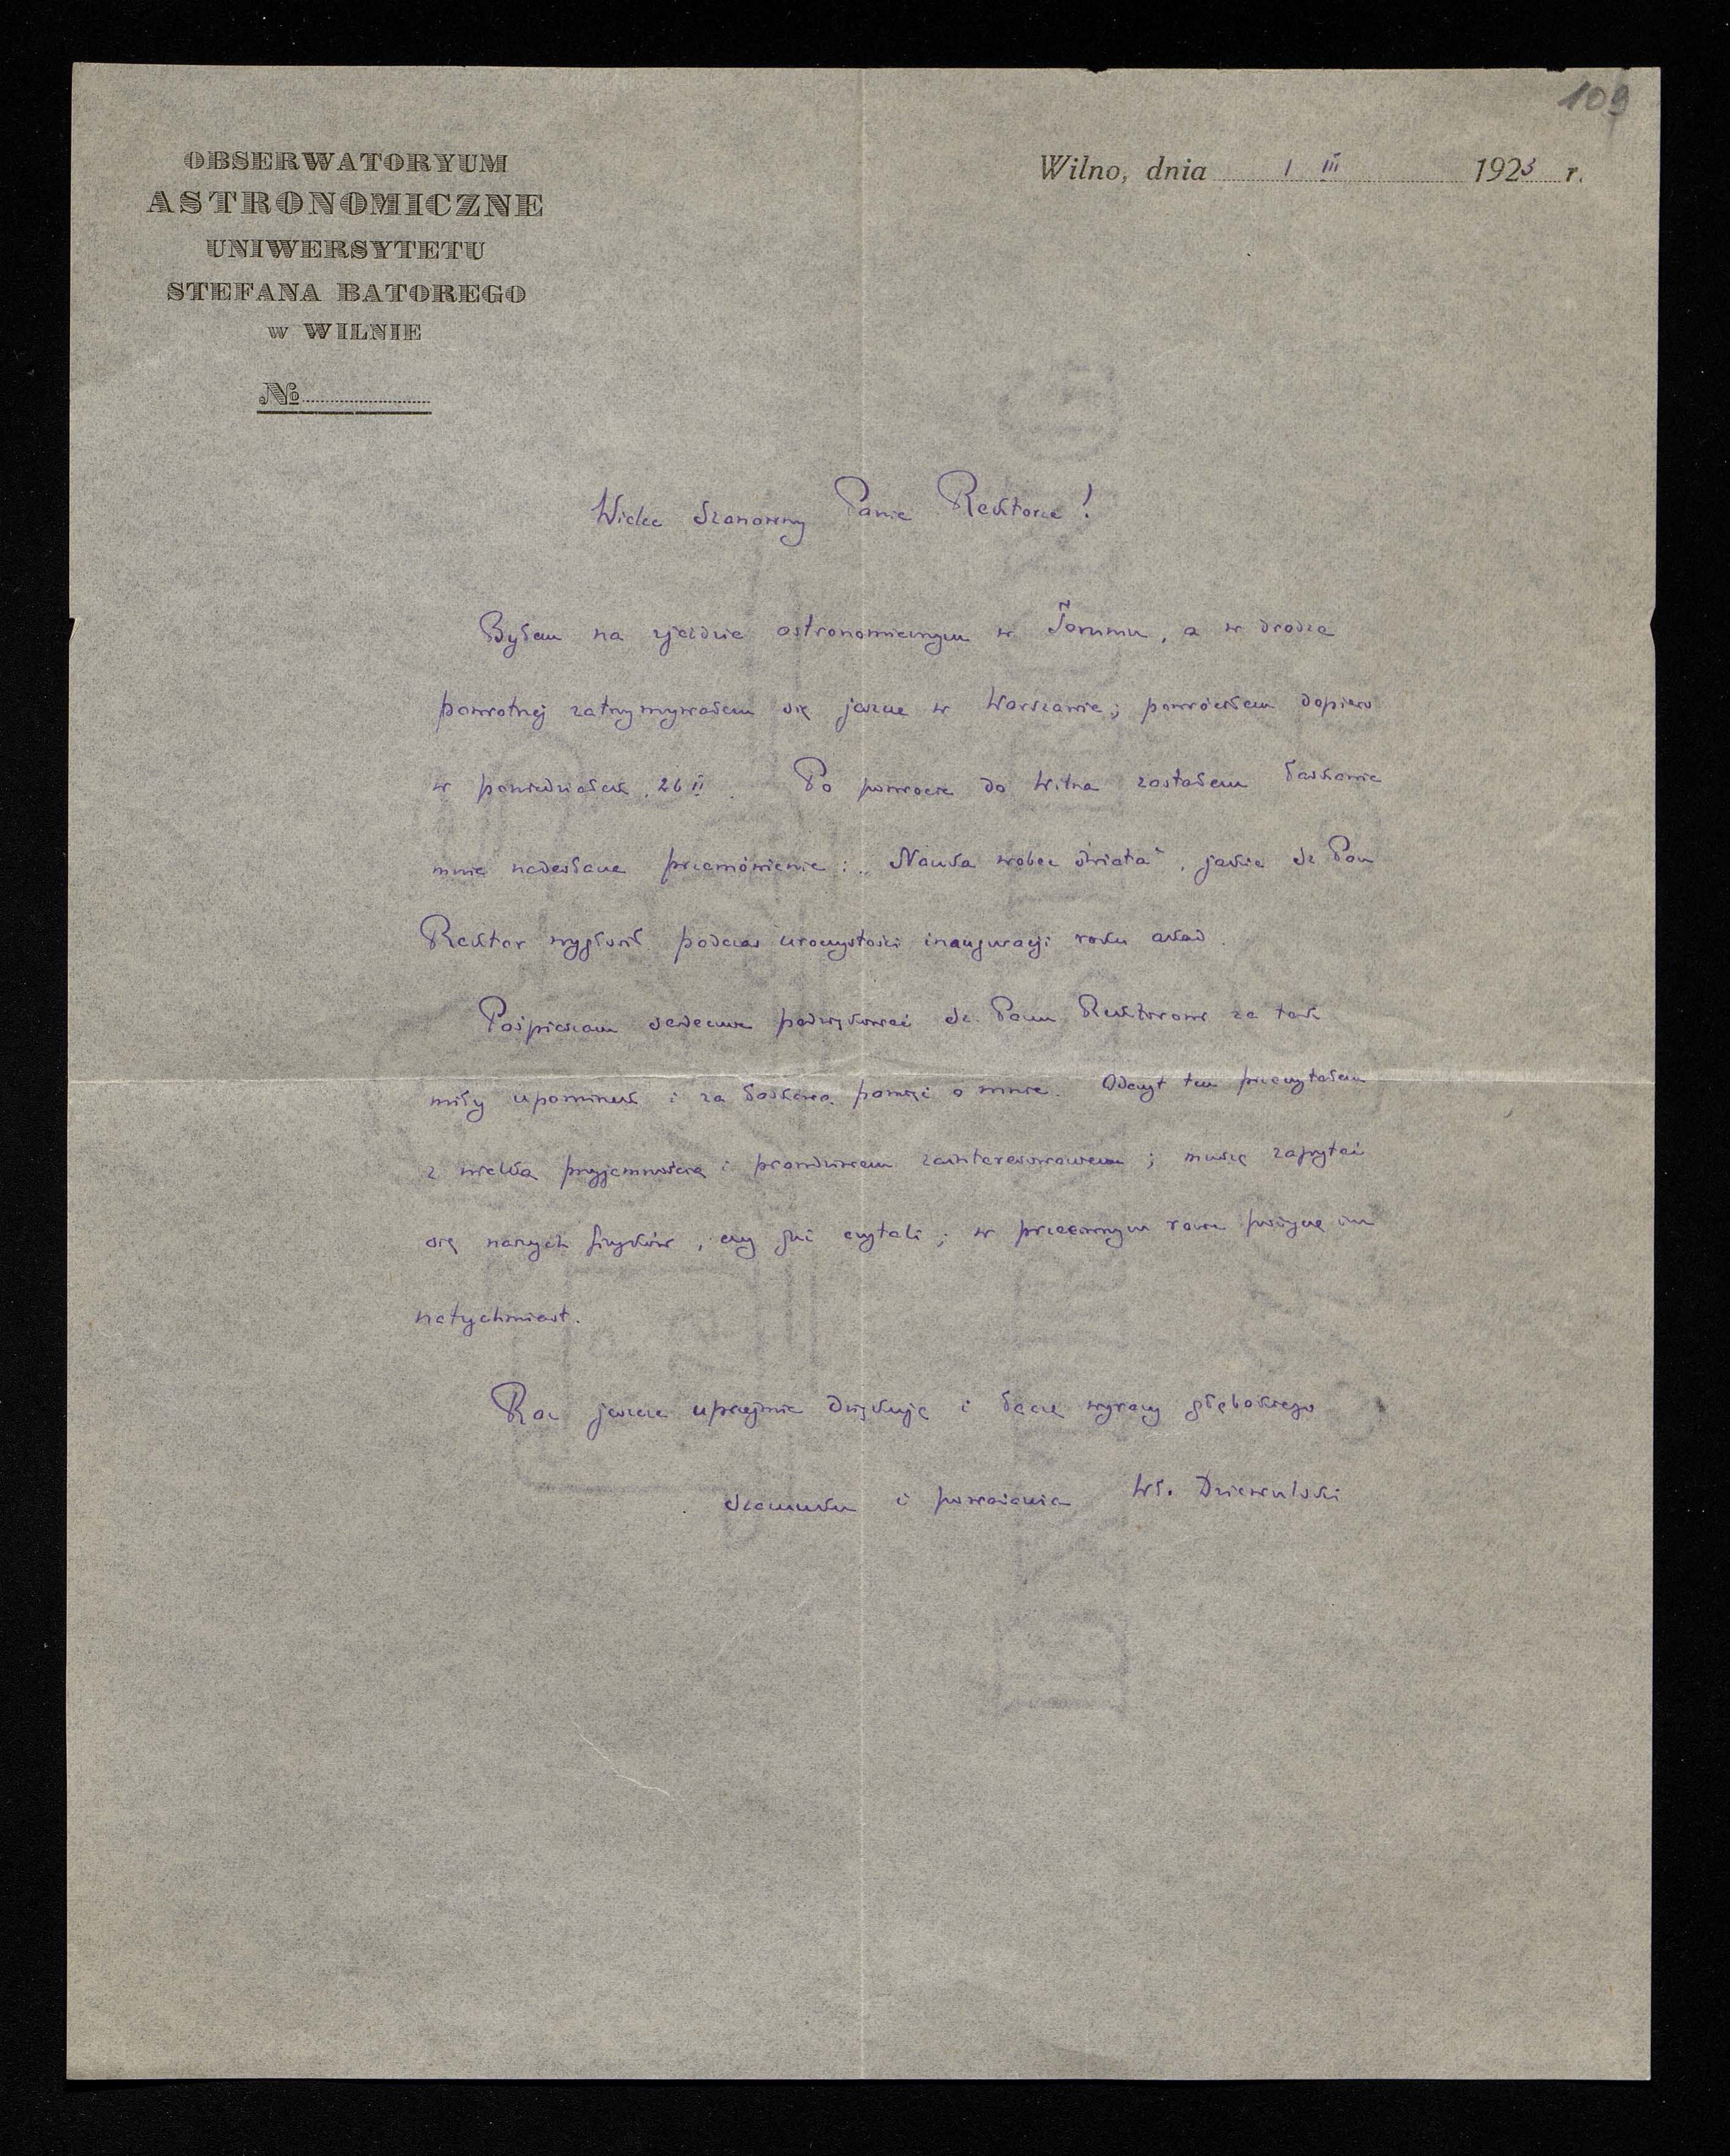 109
OBSERWATORYUM
ASTRONOMICZNE
UNIWERSYTETU
STEFANA BATOREGO
w WILNIE
№
Wilno, dnia 1 III 1923 r.
Wielce Szanowny Panie Rektorze!
Byłem na zjeździe astronomicznym w Toruniu, a w drodze
powrotnej zatrzymywałem się jeszcze w Warszawie; powróciłem dopiero
w poniedziałek, 26 II. Po powrocie do Wilna zastałem łaskawie
mnie nadesłane przemówienie: „Nauka wobec świata", jakie Sz. Pan
Rektor wygłosił podczas uroczystości inauguracji roku akad.
Pośpieszam serdecznie podziękować Sz. Panu Rektorowi za tak
miły upominek i za łaskawą pamięć o mnie. Odczyt ten przeczytałem
z wielką przyjemnością i prawdziwem zainteresowaniem; muszę zapytać
się naszych fizyków, czy go już czytali; w przeciwnym razie pożyczę im
natychmiast.
Raz jeszcze uprzejmie dziękuję i łączę wyrazy głębokiego
szacunku i poważania Wł. Dziewulski